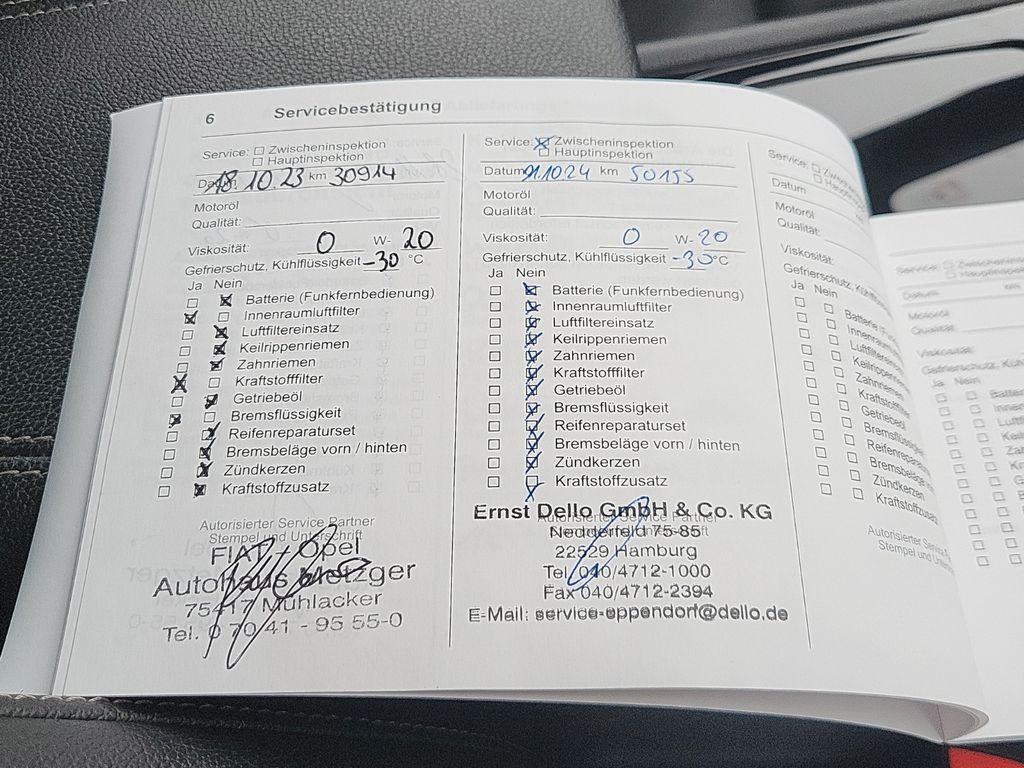 6 Servicebestätigung
Service: Zwischeninspektion
Hauptinspektion
Datum 18.10.23 km 30914
Motoröl
Qualität:
Viskosität: 0 W- 20
Gefrierschutz, Kühlflüssigkeit -30 °C
Ja Nein
Batterie (Funkfernbedienung)
Innenraumluftfilter
Luftfiltereinsatz
Keilrippenriemen
Zahnriemen
Kraftstofffilter
Getriebeöl
Bremsflüssigkeit
Reifenreparaturset
Bremsbeläge vorn / hinten
Zündkerzen
Kraftstoffzusatz
Autorisierter Service Partner
Stempel und Unterschrift
FIAT - Opel
Autohaus Metzger
75417 Mühlacker
Tel. 0 70 41 - 95 55-0
Service: Zwischeninspektion
Hauptinspektion
Datum 21.10.24 km 50155
Motoröl
Qualität:
Viskosität: 0 W- 20
Gefrierschutz, Kühlflüssigkeit -30 °C
Ja Nein
Batterie (Funkfernbedienung)
Innenraumluftfilter
Luftfiltereinsatz
Keilrippenriemen
Zahnriemen
Kraftstofffilter
Getriebeöl
Bremsflüssigkeit
Reifenreparaturset
Bremsbeläge vorn / hinten
Zündkerzen
Kraftstoffzusatz
Autorisierter Service Partner
Ernst Dello GmbH & Co. KG
Nedderfeld 75-85
22529 Hamburg
Tel. 040/4712-1000
Fax 040/4712-2394
E-Mail: service-eppendorf@dello.de
Service:
Datum
Motoröl
Qualität:
Viskosität:
Gefrierschutz, Kühlflüssig
Ja Nein
Batterie
Innenraum
Luftfiltereins
Keilrippenrie
Zahnriemen
Kraftstofffi
Getriebeöl
Bremsflüssi
Reifenrepa
Bremsbeläg
Zündkerzen
Kraftstoffzusatz
Autorisierter Service
Stempel und Unters
Service:
Datum km
Motoröl
Qualität:
Viskosität:
Gefrierschutz, Kühl
Ja Nein